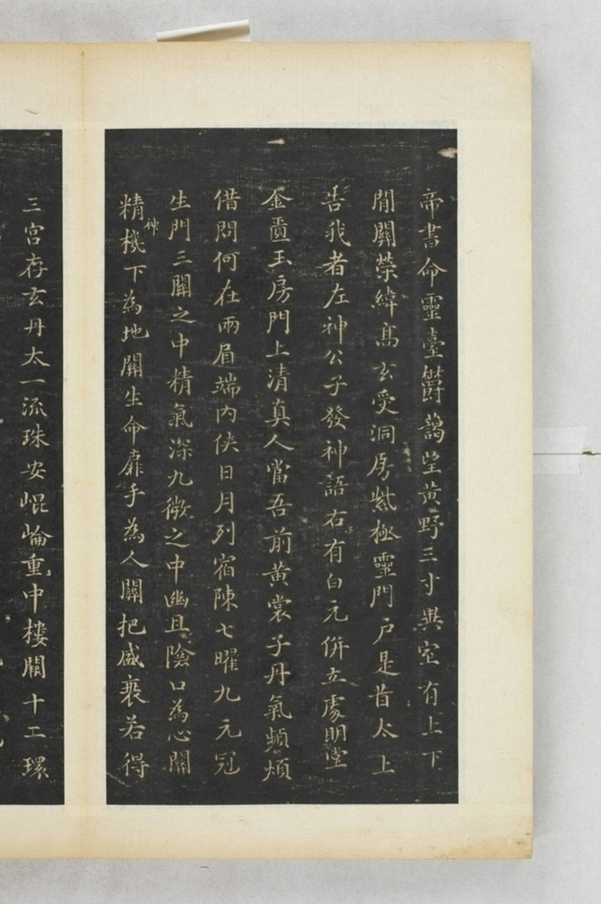 帝書命靈臺欝藹望黄野三寸異室有上下
間關榮緯髙玄受洞房紫極靈門户是昔太上
告我者左神公子發神語右有白元併立處明堂
金匱玉房門上清真人當吾前黄裳子丹氣頻煩
借問何在兩眉端内俠日月列宿陳七曜九元冠
生門三關之中精氣深九微之中幽且隂口為心關
精神機下為地關生命扉手為人關把盛衰若得
三宫存玄丹太一流珠安崐崘重中樓閣十二環